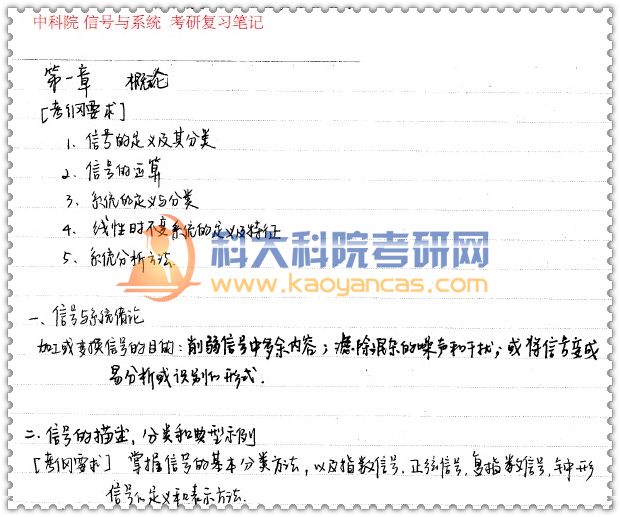 中科院 信号与系统 考研复习笔记
第一章 概论
[考纲要求]
1. 信号的定义及其分类
2. 信号的运算
3. 系统的定义与分类
4. 线性时不变系统的定义及特征
5. 系统分析方法.
科大科院考研网
www.kaoyancas.com
一、信号与系统概论
加工或变换信号的目的：削弱信号中多余内容；滤除混杂的噪声和干扰；或将信号变成
易分析或识别的形式.
二. 信号的描述，分类和典型示例
[考纲要求] 掌握信号的基本分类方法，以及指数信号，正弦信号，复指数信号，钟形
信号的定义和表示方法.